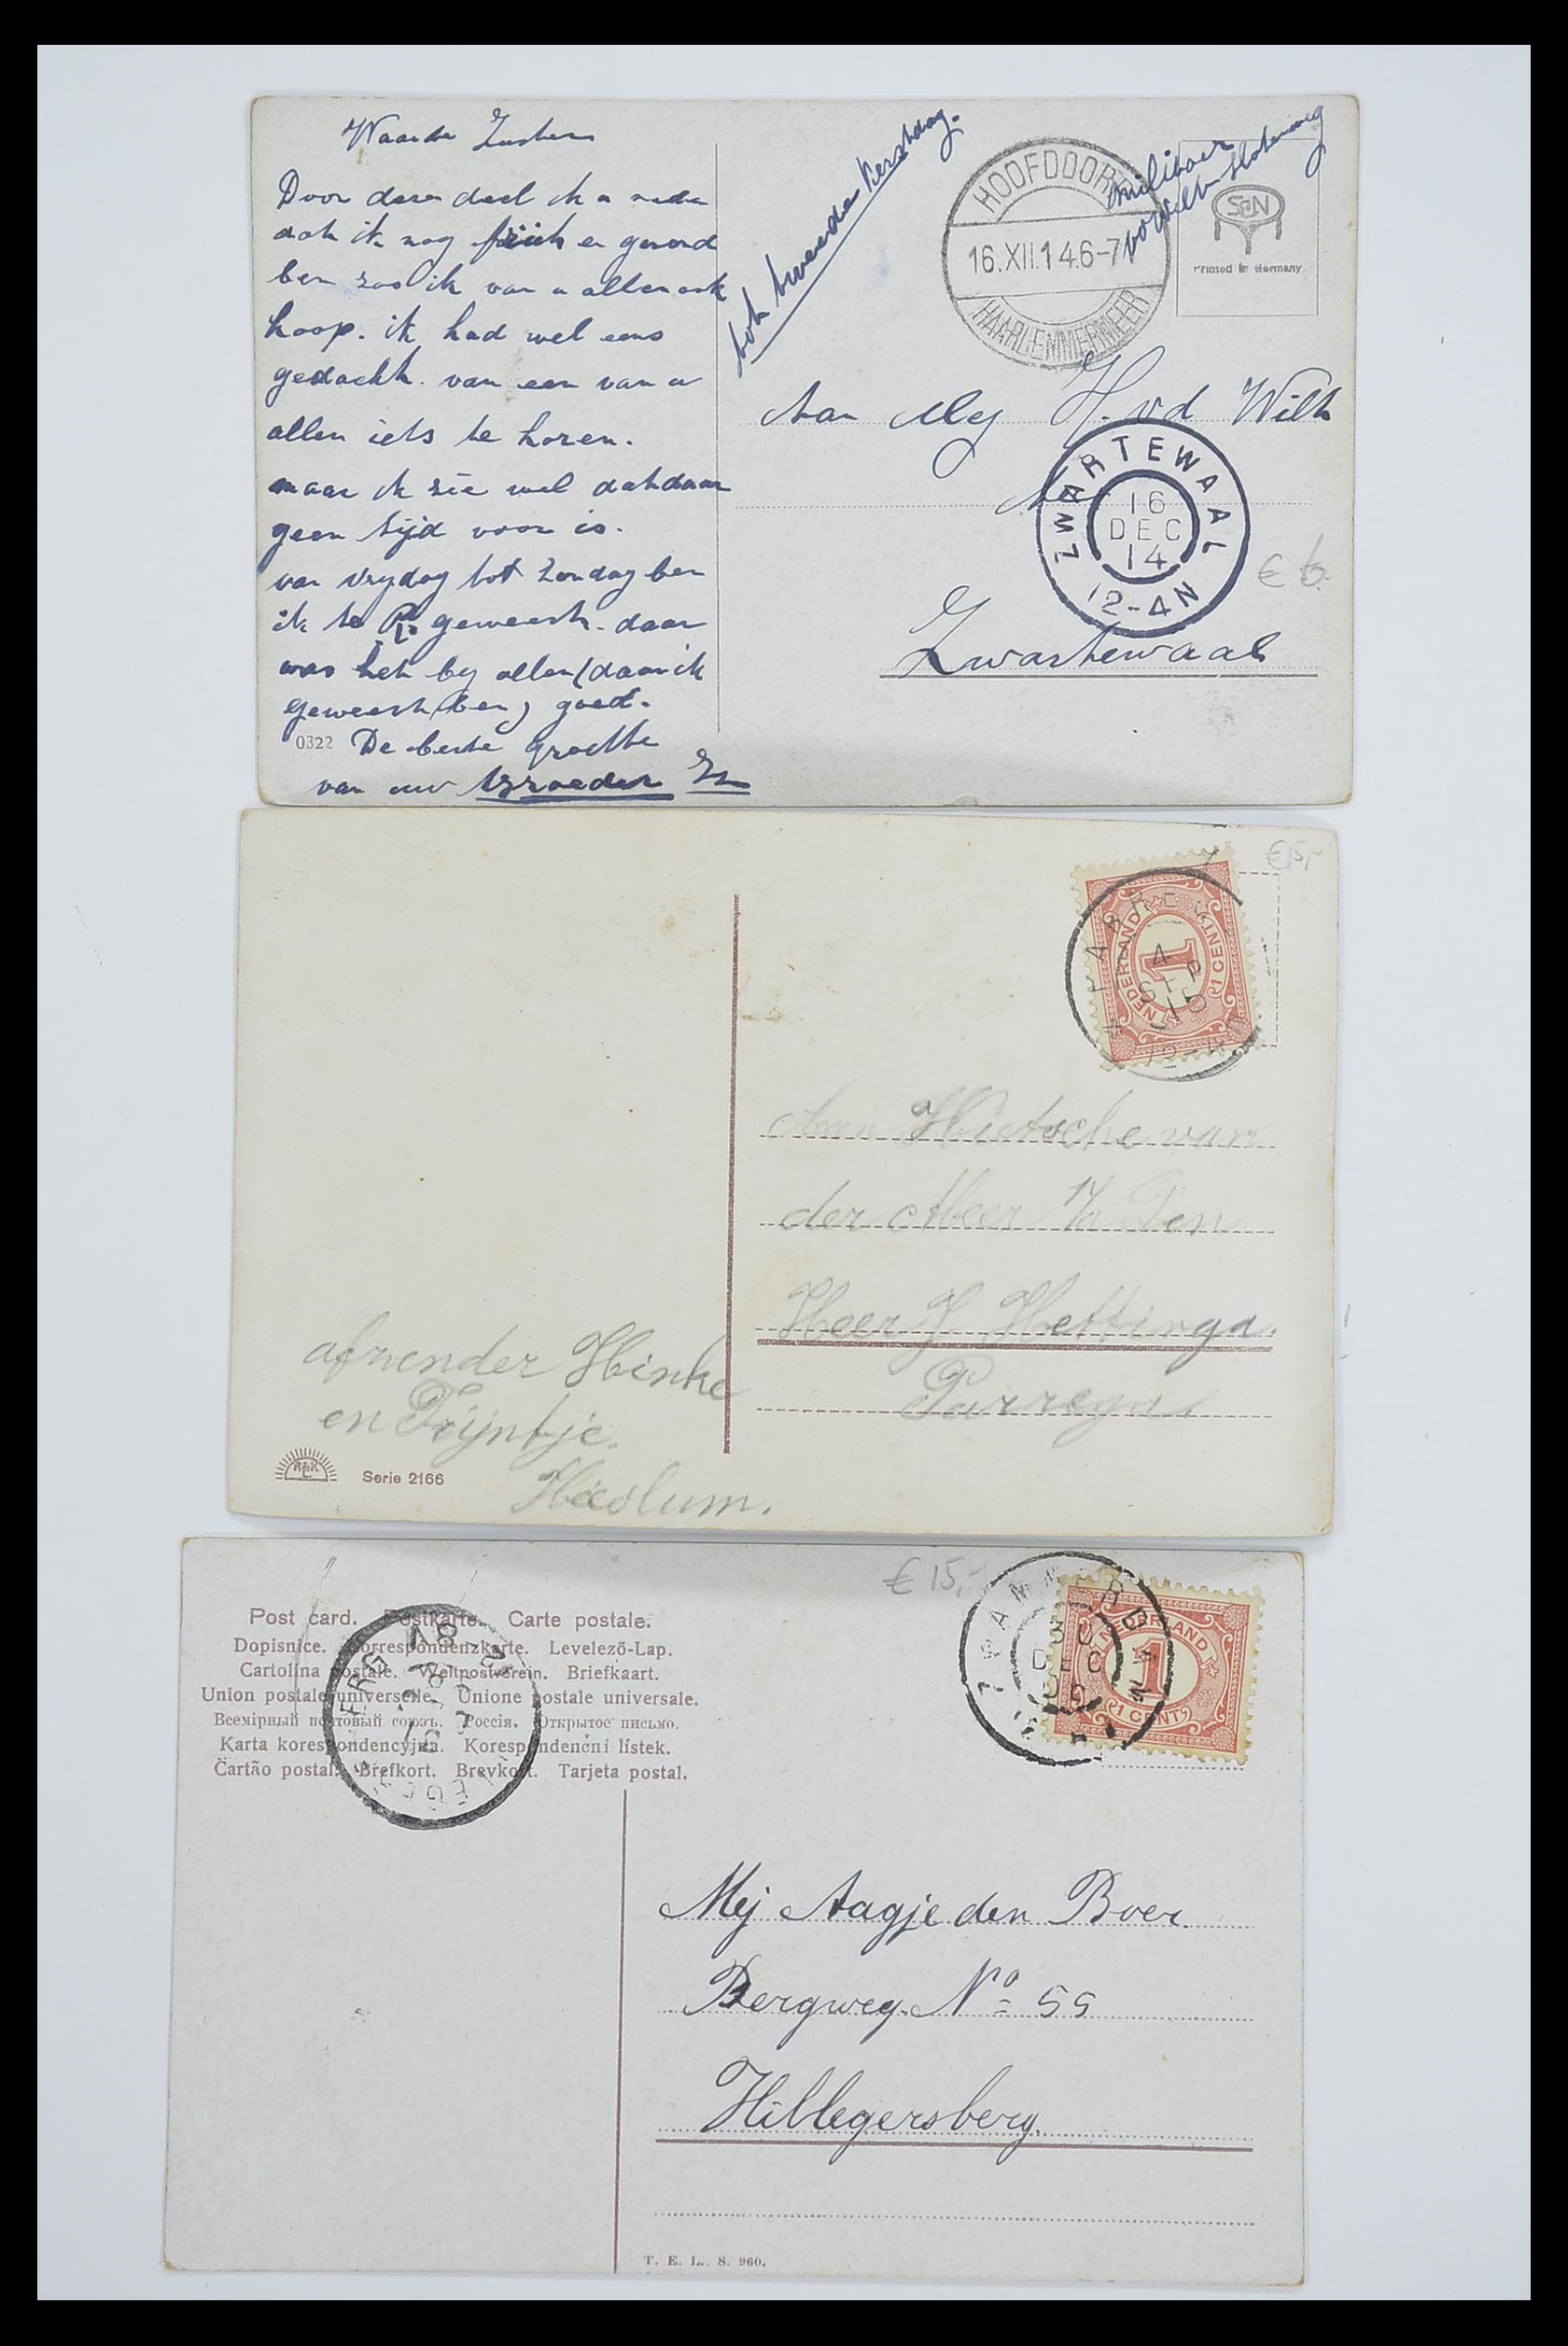 Waarde Zusters
Door deze deel ik u mede
dat ik nog frisch en gezond
ben zoo ik van u allen ook
hoop. ik had wel eens
gedacht. van een van u
allen iets te horen.
maar ik zie wel dat daar
geen tijd voor is.
van vrydag tot Zondag ben
ik te P. geweest. daar
was het by allen (daar ik
geweest ben) goed.
0322 De beste groette
van uw Broeder
tot tweede Kerstdag.
HOOFDDORP
16.XII.14 6-7
HAARLEMMERMEER
militair
S&N
Printed in Germany
Aan Mej H. vd Wilt
ZWARTEWAAL
16
DEC
14
12-4N
€ 6.
Zwartewaal
€15,-
PARREGA
4
SEP
10
12-4
NEDERLAND
1
1 CENT
Aan Hietsche van
der Meer p/a Den
Heer J Hettinga.
Parrega
afzender Hinke
en Trijntje.
Hieslum.
R&K
L
Serie 2166
€ 15,-
Post card. Postkarte. Carte postale.
Dopisnice. Correspondenzkarte. Levelező-Lap.
Cartolina postale. Weltpostverein. Briefkaart.
Union postale universelle. Unione postale universale.
Всемірный почтовый союзъ. Россія. Открытое письмо.
Karta korespondencyjna. Korespondenční lístek.
Cartão postal. Brefkort. Brevkort. Tarjeta postal.
NEDERLAND
1
1 CENT
Mej Aagje den Boer
Bergweg. No 55
Hillegersberg.
T. E. L. S. 960.